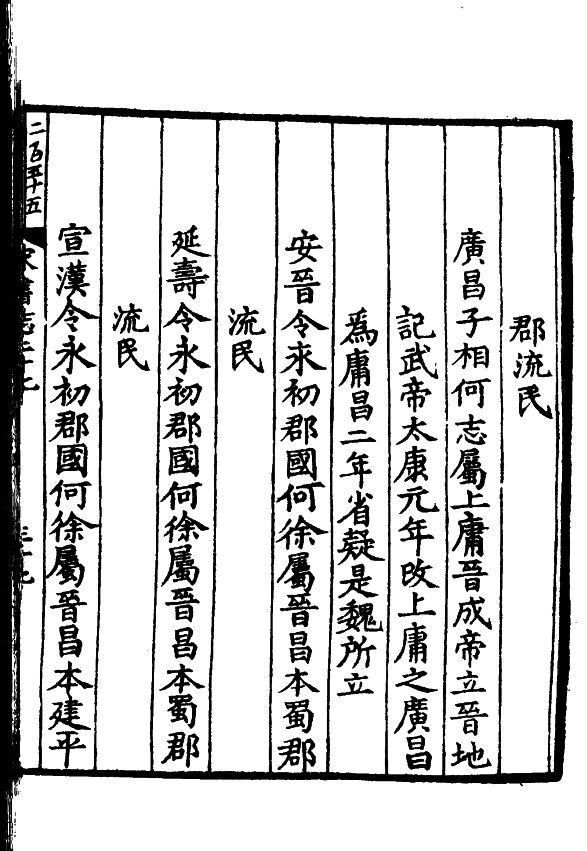 郡流民
廣昌子相何志屬上庸晉成帝立晉地
記武帝太康元年改上庸之廣昌
爲庸昌二年省疑是魏所立
安晉令永初郡國何徐屬晉昌本蜀郡
流民
延壽令永初郡國何徐屬晉昌本蜀郡
流民
宣漢令永初郡國何徐屬晉昌本建平
二百五十五